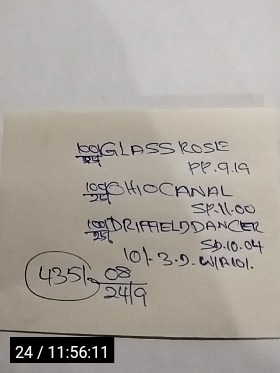 100/24 GLASS ROSE
PP.9.19
100/24 OHIOCANAL
SP.11.00
100/25 DRIFFIELDDANCER
SD.10.04
10/. 3.D. W/R10/.
435/. 08
24/9
24 / 11:56:11